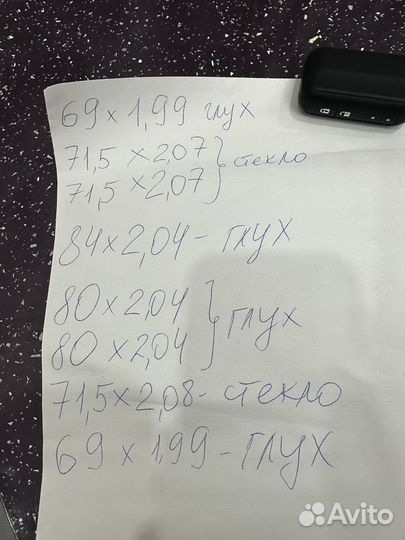 69 x 1,99 глух
71,5 x 2,07 } стекло
71,5 x 2,07
84 x 2,04 - глух
80 x 2,04 } глух
80 x 2,04
71,5 x 2,08 - стекло
69 x 1,99 - глух
Avito